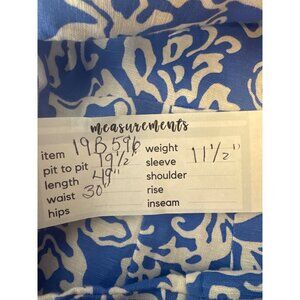 measurements
item 19B596 weight
pit to pit 19½" sleeve 11½"
length 49" shoulder
waist 30" rise
hips inseam